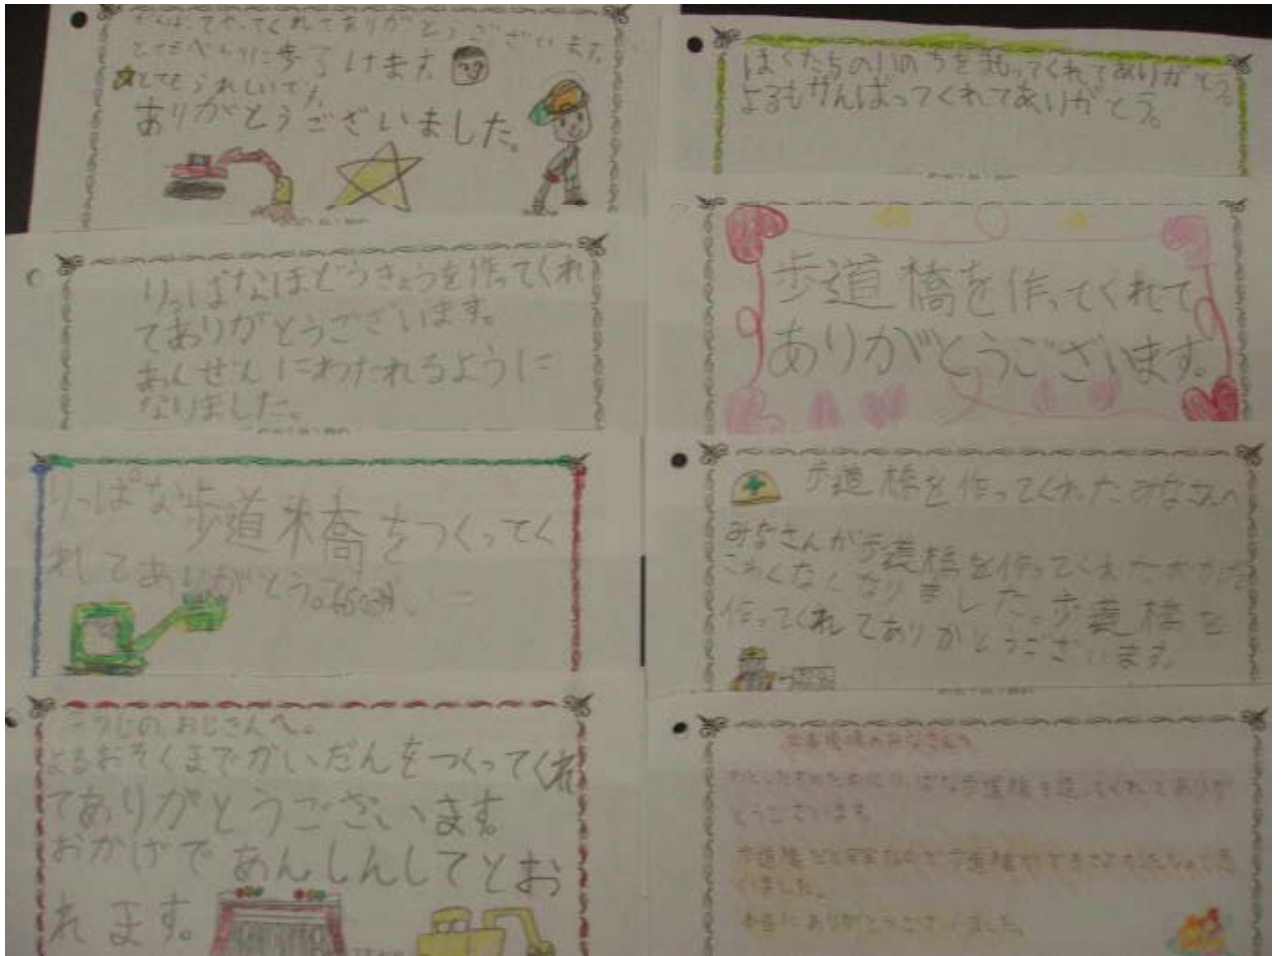 がんばってやってくれてありがとうございます。
に歩
とてもうれしいです
ありがとうございました。
りっぱなほどうきょうを作ってくれ
てありがとうございます。
あんせんにわたれるように
なりました。
りっぱな歩道橋をつくってく
れてありがとう。
こうじのおじさんへ。
よるおそくまでかいだんをつくってくれ
てありがとうございます。
おかげであんしんしてとお
れます。
ぼくたちのいのちを守ってくれてありがとう。
よるもがんばってくれてありがとう。
歩道橋を作ってくれて
ありがとうございます。
歩道橋を作ってくれたみなさんへ
みなさんが歩道橋を作ってくれたおかげで
こわくなくなりました。歩道橋を
作ってくれてありがとうございます。
のみなさんへ
わたしたちのためにりっぱな歩道橋を造ってくれてありが
とうございます。
歩道橋だと安全なので歩道橋ができてよかったなと思
いました。
本当にありがとうございました。